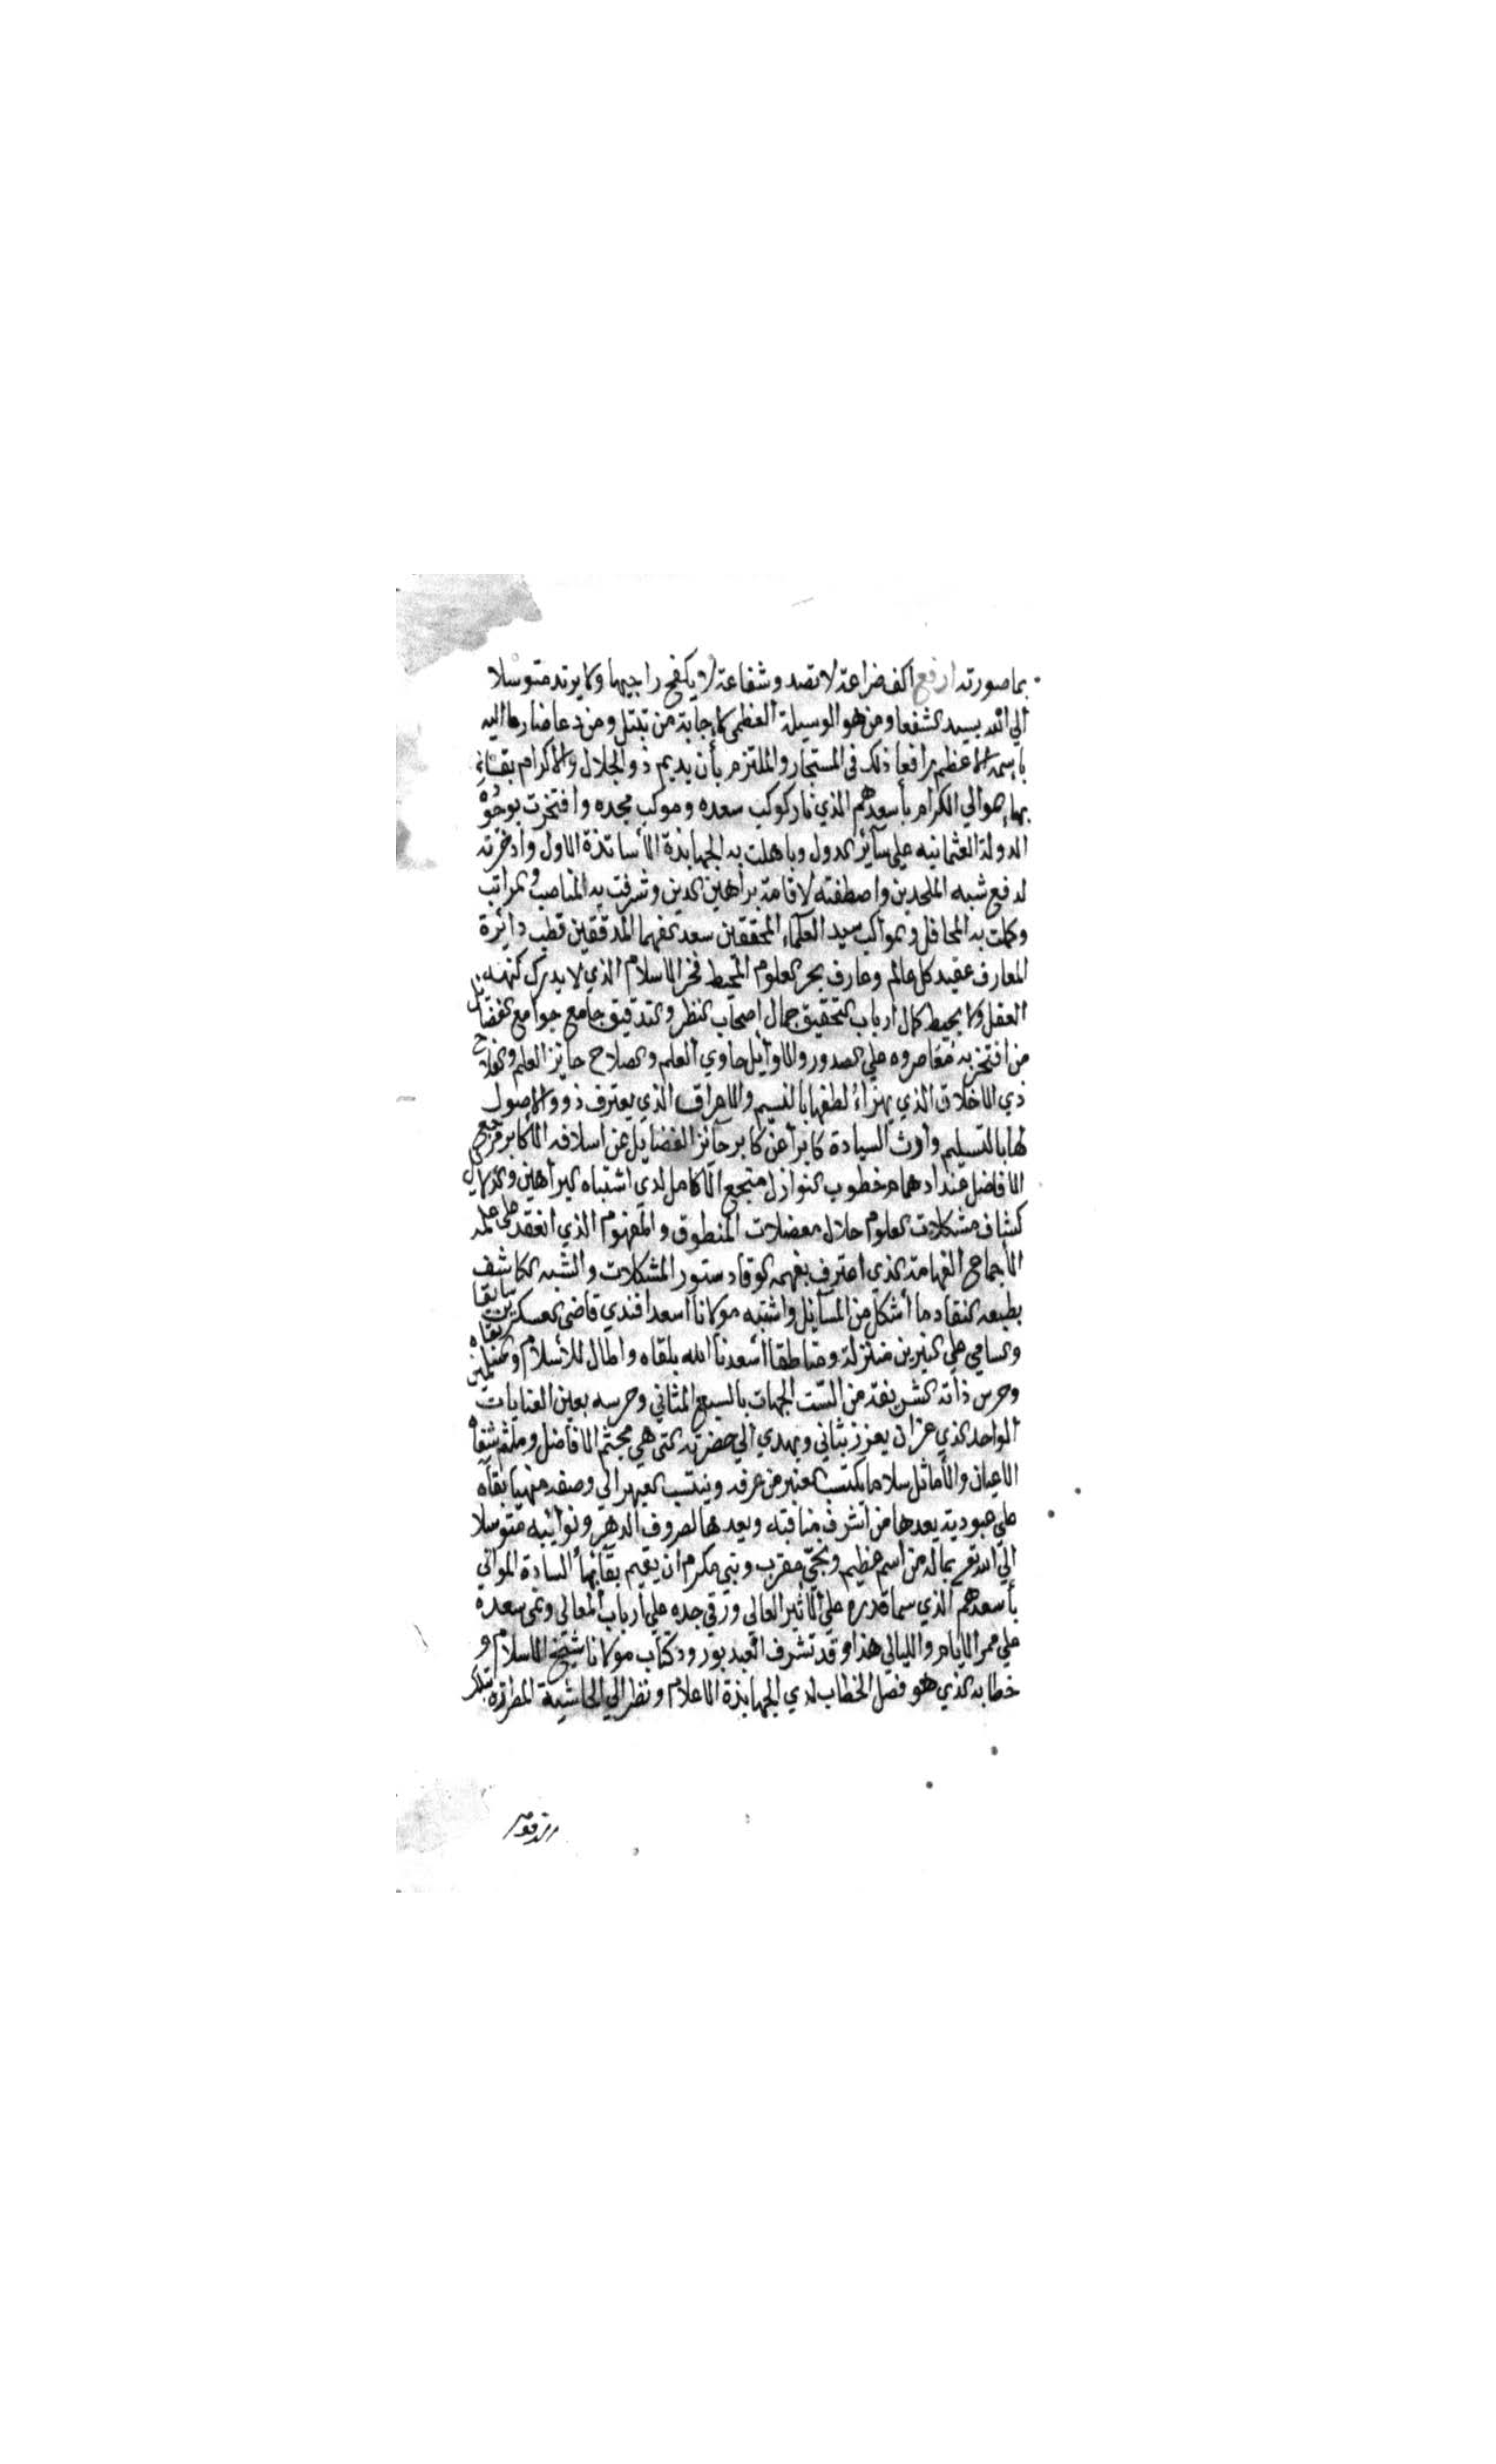 بما صورته ارفع اكف ضراعة لا تصد وشفاعة لا يكفح راجيها ولا يرتد متوسلا
الي الله بسيد الشفعا ومن هو الوسيلة العظمى لاجابة من تبتل ومن دعا ضارعا اليه
باسمه الاعظم رافعا ذلك في المستجار والملتزم بأن يديم ذو الجلال والاكرام بقائه
بهاء موالي الكرام بأسعدهم الذي نار كوكب سعده وموكب مجده وافتخرت بوجوده
الدولة العثمانيه علي سآئر الدول وباهلت به الجهابذة الأساتذة الاول وادخرته
لدفع شبه الملحدين واصطفته لاقامة براهين الدين وشرفت به المناصب والمراتب
وكملت به المحافل والمواكب سيد العلمآء المحققين سعد الفهما المدققين قطب دائرة
المعارف عقيد كل عالم وعارف بحر العلوم المحيط فخر الاسلام الذي لا يدرك كنهه
العقل ولا يحيط كمال ارباب التحقيق جمال اصحاب النظر والتدقيق جامع جوامع الفضايل
من افتخر به مُعَاصروه علي الصدور والاوآيل حاوي العلم والصلاح حائز العلم والفلاح
ذي الاخلاق الذي يهزاء لطفها بالنسيم والاعراق الذي يعترف ذوو الاصول
لها بالتسليم وارث السيادة كابرا عن كابر حآئز الفضايل عن اسلافه الأكابر مرجع
الافاضل عند ادهمام خطوب النوازل منتجع الأكامل لدي اشتباه البراهين والدلايل
كشاف مشكلات العلوم حلال معضلات المنطوق والمفهوم الذي انعقد علي علمه
الأجماع الفهامة الذي اعترف بفهمه الوقاد ستور المشكلات والشبه الكاشف
بطبعه النقاد ما أشكل من المسآيل واشتبه مولانا اسعد افندي قاضي العسكرين سابقا
والسامي علي النيرين منزلة ومناطقا أسعدنا الله بلقاه واطال للأسلام والمسلمين بقاه
وحرس ذاته الشريفة من الست الجهات بالسبع المثاني وحرسه بعين العنايات
الواحد الذي عز ان يعزز بثاني ويهدي الي حضرته التي هي مجثم الافاضل وملثم شفاه
الاعيان والأماثل سلاما يكتسب العنبر من عرفه وينتسب العبهر الي وصفه منهيا بقآه
علي عبودية يعدها من أشرف مناقبه ويعدها لصروف الدهر ونوائبه متوسلا
الي الله تعـ بماله من اسم عظيم ونجي مقرب ونبي مكرم ان يقيم بقآئها السادة الموالي
بأسعدهم الذي سما قدره علي الأثير العالي ورقي جده علي أرباب المعالي ونمى سعده
علي ممر الايام والليالي هذا وقد تشرف العبد بورود كتاب مولانا شيخ الاسلام و
خطابه الذي هو فصل الخطاب لدي الجهابذة الاعلام ونظر الي الحاشية المطرزة بتلك